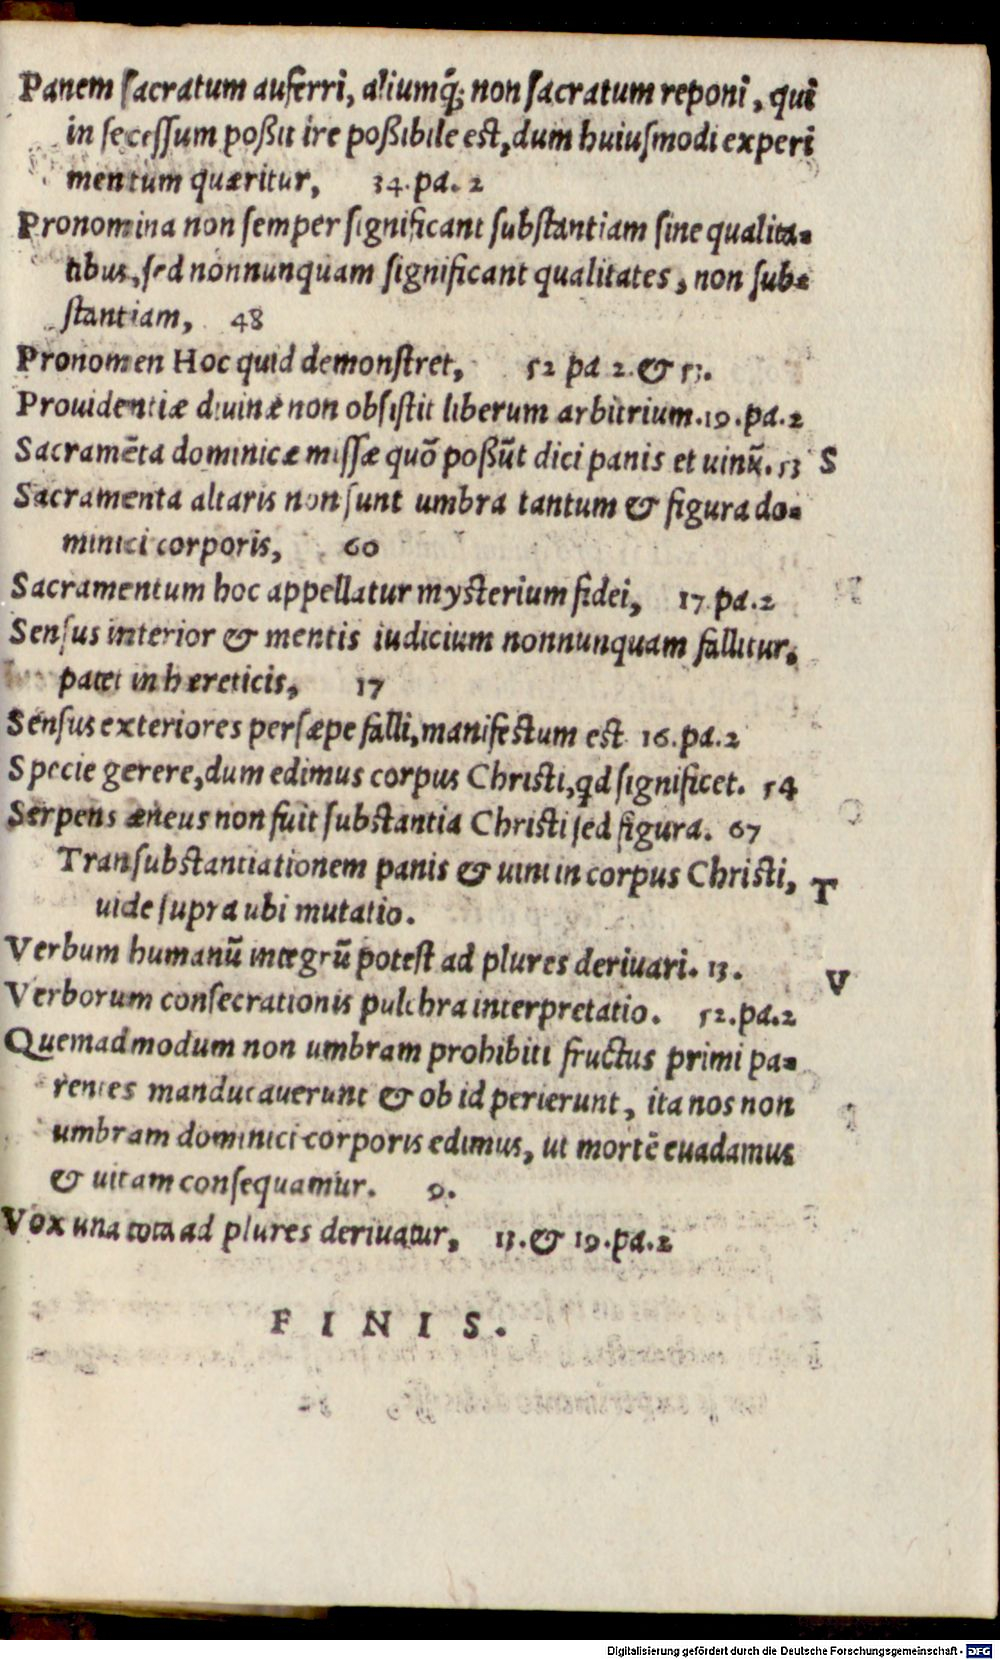 Panem ſacratum auferri, aliumq́; non ſacratum reponi, qui
in ſeceſſum poßit ire poßibile eſt, dum huiuſmodi experi
mentum quæritur, 34.pa.2
Pronomina non ſemper ſignificant ſubſtantiam ſine qualita-
tibus, ſed nonnunquam ſignificant qualitates, non ſub-
ſtantiam, 48
Pronomen Hoc quid demonſtret, 52 pa 2. & 53.
Prouidentiæ diuinæ non obſiſtit liberum arbitrium. 19.pa.2
Sacramēta dominicæ miſſæ quō poßūt dici panis et uinū. 53 S
Sacramenta altaris non ſunt umbra tantum & figura do-
minici corporis, 60
Sacramentum hoc appellatur myſterium fidei, 17 pa.2
Senſus interior & mentis iudicium nonnunquam fallitur,
patet in hereticis, 17
Senſus exteriores perſæpe falli, manifeſtum eſt 16.pa.2
Specie gerere, dum edimus corpus Chriſti, qd ſignificet. 54
Serpens æneus non fuit ſubſtantia Chriſti ſed figura. 67
Tranſubſtantiationem panis & uini in corpus Chriſti, T
uide ſupra ubi mutatio.
Verbum humanū integrū poteſt ad plures deriuari. 13. V
Verborum conſecrationis pulchra interpretatio. 52.pa.2
Quemadmodum non umbram prohibiti fructus primi pa-
rentes manducauerunt & ob id perierunt, ita nos non
umbram dominici corporis edimus, ut mortē euadamus
& uitam conſequamur. 9.
Vox una tota ad plures deriuatur, 13. & 19.pa.2
FINIS.
Digitalisierung gefördert durch die Deutsche Forschungsgemeinschaft - DFG